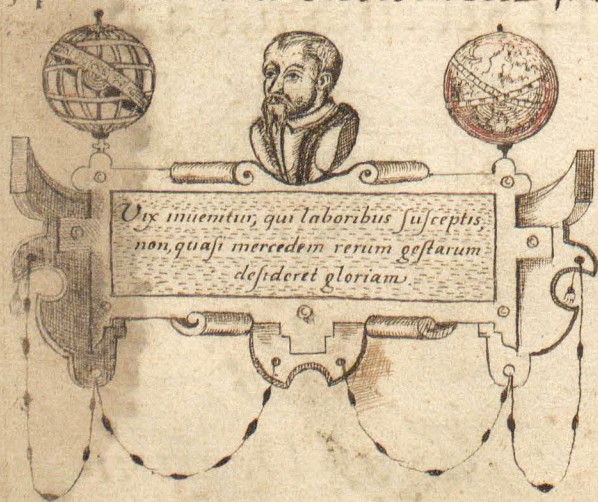 Vix inuenitur, qui laboribus ſuſceptis,
non, quaſi mercedem rerum geſtarum
deſideret gloriam.